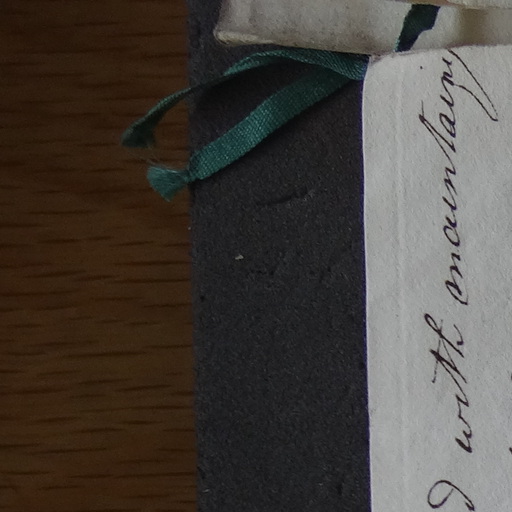 with mountainy